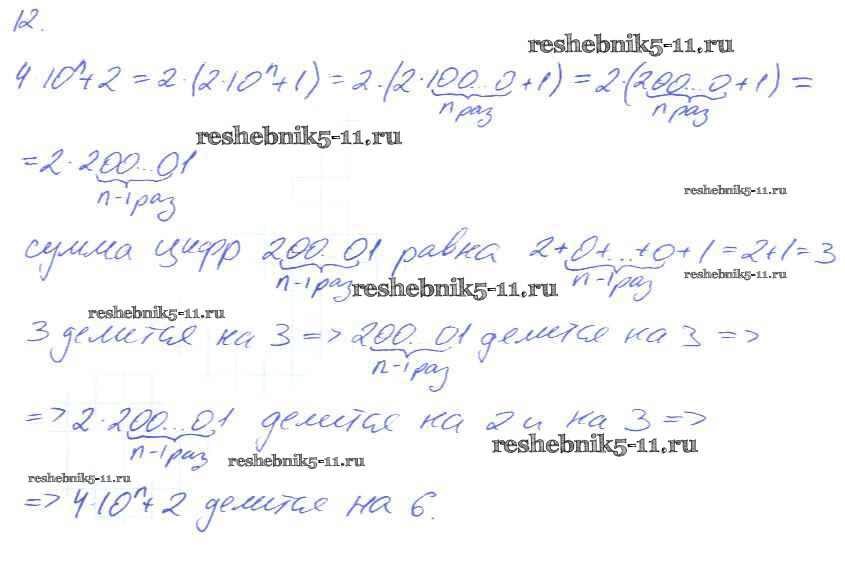 12.
reshebnik5-11.ru
4·10ⁿ+2 = 2·(2·10ⁿ+1) = 2·(2·100...0+1) = 2·(200...0+1) =
n раз n раз
reshebnik5-11.ru
= 2·200...01
n-1 раз
reshebnik5-11.ru
сумма цифр 200...01 равна 2+0+...+0+1=2+1=3
n-1 раз n-1 раз
reshebnik5-11.ru
reshebnik5-11.ru
reshebnik5-11.ru
3 делится на 3 => 200...01 делится на 3 =>
n-1 раз
=> 2·200...01 делится на 2 и на 3 =>
n-1 раз
reshebnik5-11.ru
reshebnik5-11.ru
reshebnik5-11.ru
=> 4·10ⁿ+2 делится на 6.